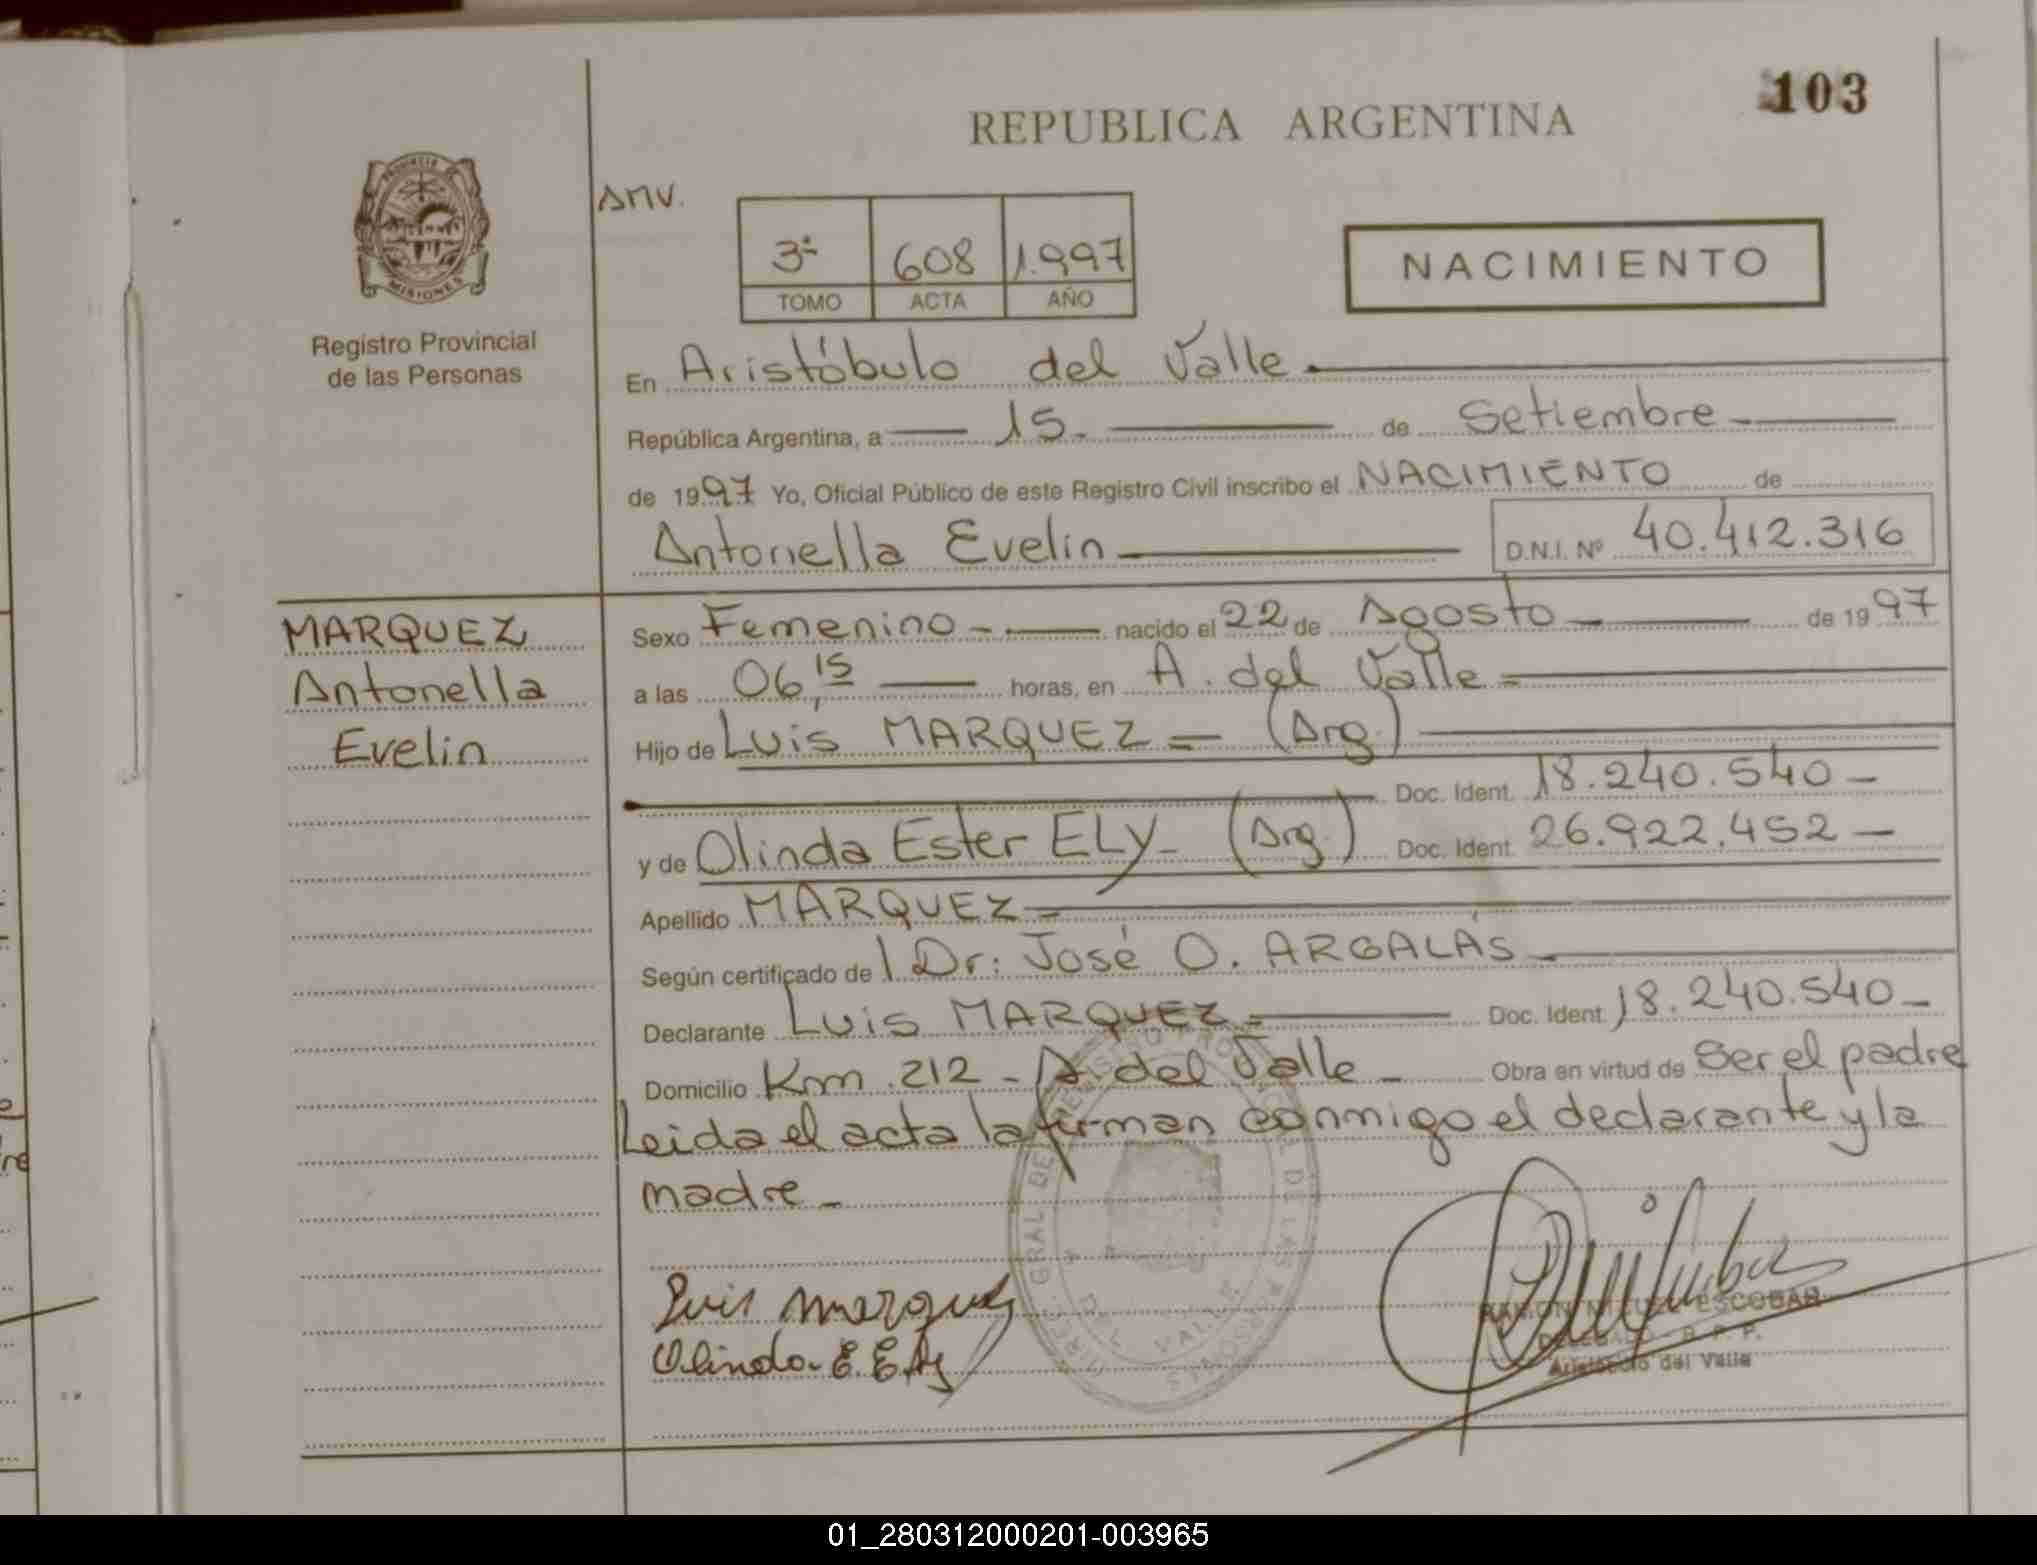 103
REPUBLICA ARGENTINA
PROVINCIA DE
MISIONES
Registro Provincial
de las Personas
AMV.
3ª 608 1.997
TOMO ACTA AÑO
NACIMIENTO
En Aristóbulo del Valle
República Argentina, a 15 de Setiembre
de 1997 Yo, Oficial Público de este Registro Civil inscribo el NACIMIENTO de
Antonella Evelin D.N.I. Nº 40.412.316
MARQUEZ
Antonella
Evelin
Sexo Femenino nacido el 22 de Agosto de 1997
a las 06,15 horas, en A. del Valle
Hijo de Luis MARQUEZ (Arg.)
Doc. Ident. 18.240.540
y de Olinda Ester ELY (Arg.) Doc. Ident. 26.922.452
Apellido MARQUEZ
Según certificado de Dr: José O. ARGALÁS
Declarante Luis MARQUEZ Doc. Ident. 18.240.540
Domicilio Km. 212 - A. del Valle Obra en virtud de Ser el padre
Leida el acta la firman conmigo el declarante y la
madre
Luis Marquez
Olinda E. Ely
RAMON MIGUEL ESCOBAR
DELEGADO - R. P. P.
Aristóbulo del Valle
01_280312000201-003965